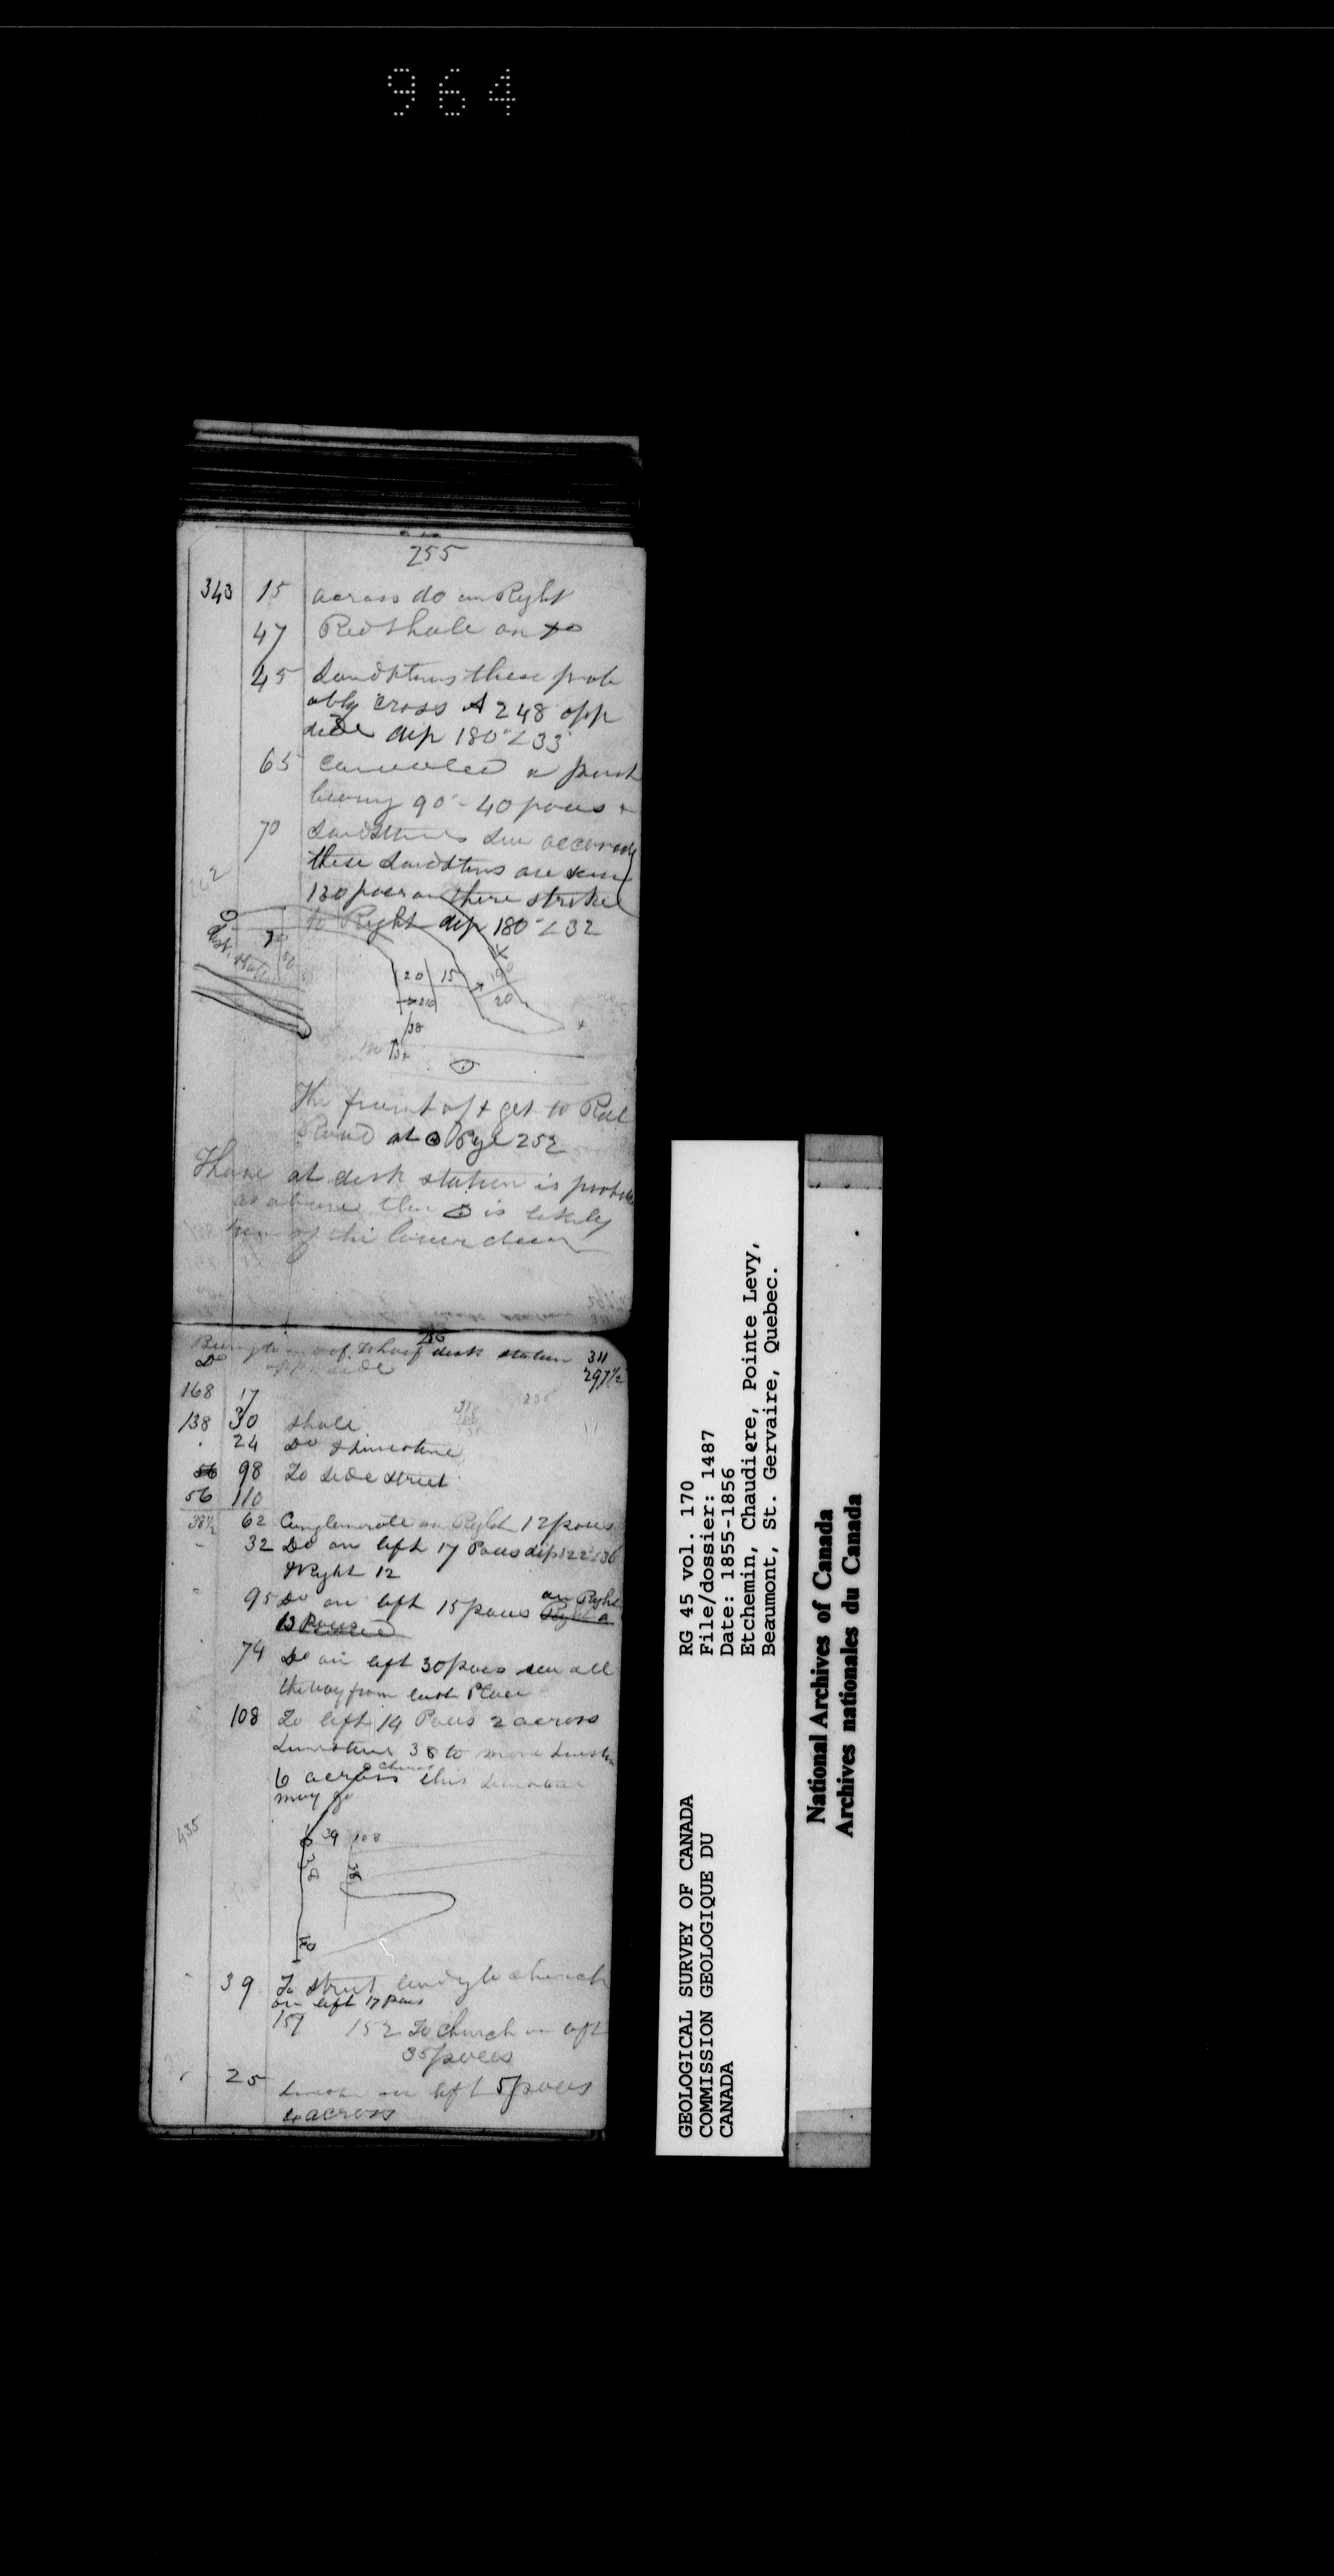 964
255
343 15 across do on Right
47 Red shale on do
45 Sandstones these prob
ably cross A 248 opp
side dip 180°∠33
65 concealed a point
bearing 90° - 40 paces +
70 Sandstones
these Sandstones are seen
130 paces on there strike
to Right dip 180°∠32
20 15 190
20
38
The front of + get to Rail
Road at ⊙ Page 252
at desk station is probable
as above the ⊙ is likely
of the lower
256
Bearing to end of Wharf desk station 311
Do opp. side 297½
168 17
138 30 Shale
24 Do & Limestone
98 To side street
56 110
38½ 62 Conglomerate on Right 12 paces
32 Do on left 17 Paces dip 122°∠36
& Right 12
95 Do on left 15 paces on Right
74 Do on left 30 paces seen all
the way from last Place
108 To left 14 Paces 2 across
Limestone 38 to more Limestone
6 across this Limestone
may go
435
39 108
38 38
39 To street leading to church
on left 17 paces
157 152 To church on left
35 paces
25 Limestone on left 5 paces
4 across
RG 45 vol. 170
File/dossier: 1487
Date: 1855-1856
Etchemin, Chaudiere, Pointe Levy,
Beaumont, St. Gervaire, Quebec.
GEOLOGICAL SURVEY OF CANADA
COMMISSION GEOLOGIQUE DU
CANADA
National Archives of Canada
Archives nationales du Canada